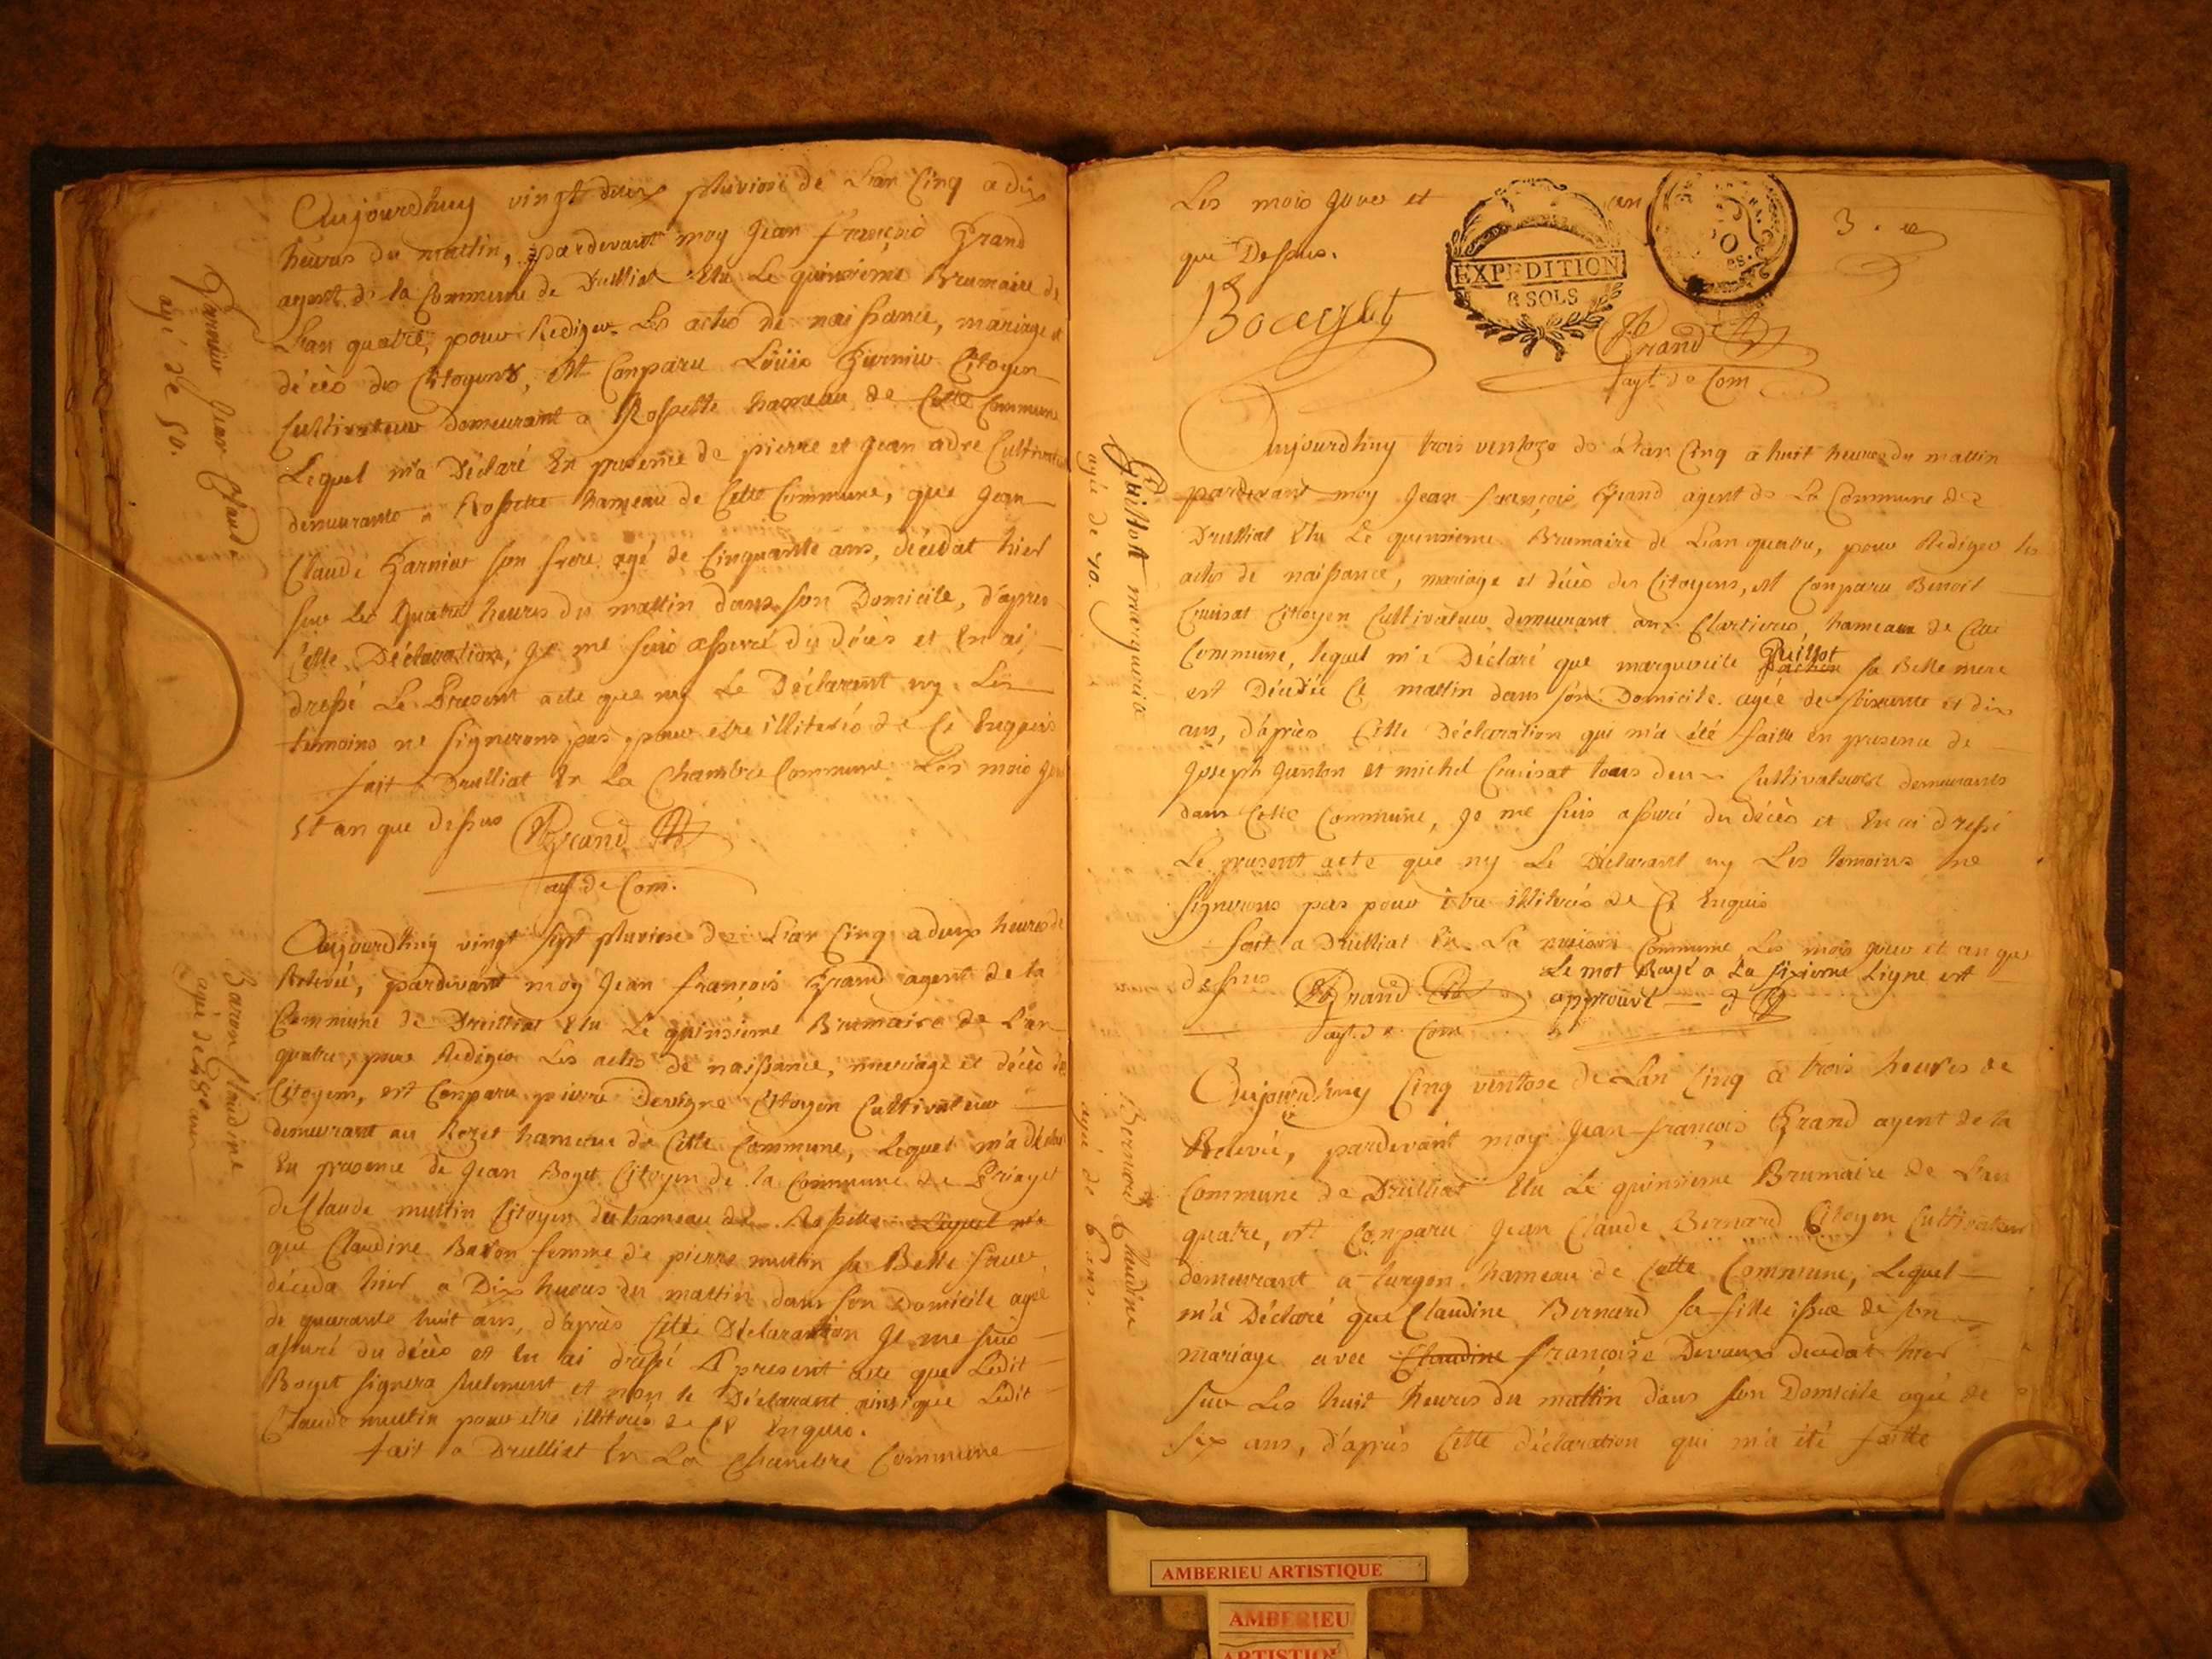 Garnier Jean Claude
agé de 50.
Aujourdhuy vingt deux pluviose de Lan Cinq a dix
heures du mattin, pardevant moy Jean françois Grand
agent de la Commune de Drulliat Elu Le quinsieme Brumaire de
Lan quatre, pour Rediger Les actes de naissance, mariage et
décès des Citoyens, est Conparu Loüis Garnier Citoyen
Cultivateur Demeurant a Rossette hameau de Cette Commune
Lequel m'a Déclaré En presence de pierre et Jean adré
demeurants a Rossette hameau de Cette Commune, que Jean
Claude Garnier son frere agé de Cinquante ans, décédat hier
sur Les quatre heures du mattin dans son Domicile, d'après
Cette Déclaration, Je me suis assuré du décès et En ai
dressé Le Present acte que ny Le Déclarant ny Les
temoins ne signerons pas pour etre illiterés de Ce Enquis
fait a Drulliat En La Chambre Commune Les mois
et an que dessus Grand
agt. de Com.
Baron Claudine
agée de 48 ans
Aujourdhuy vingt sept pluviose de Lan Cinq a deux heures de
Relevée, pardevant moy Jean françois Grand agent de la
Commune de Drulliat Elu Le quinsieme Brumaire de Lan
quatre, pour Rediger Les actes de naissance, mariage et décès des
Citoyens, est Conparu pierre Devigne Citoyen Cultivateur
demeurant au Rozet hameau de Cette Commune, Lequel m'a
En presence de Jean Boget Citoyen de la Commune de Priay et
de Claude muttin Citoyen du hameau de Rossette Lequel m'a
que Claudine Baron femme de pierre muttin sa Belle soeur
déceda hier a Dix heures du mattin dans son Domicile agée
de quarante huit ans, d'après Cette Déclaration Je me suis
assuré du décès et En ai dressé Le present acte que Ledit
Boget signera seulement et non le Déclarant ainsique Ledit
Claude muttin pour etre illiterés de Ce Enquis.
fait a Drulliat En La Chambre Commune
Les mois jour et an
que Dessus.
EXPEDITION
8 SOLS
3.e
Grand
agt. de Com
Guillott marguerite
agée de 70.
Aujourdhuy trois ventose de Lan Cinq a huit heures du mattin
pardevant moy Jean françois Grand agent de La Commune de
Drulliat Elu Le quinsieme Brumaire de Lan quatre, pour Rediger les
actes de naissance, mariage et décès des Citoyens, est Conparu Benoit
Cruisat Citoyen Cultivateur demeurant aux Clartieres, hameau de Cette
Commune, lequel m'a Déclaré que marguerite Guillot sa Belle mere
est Décédée Ce mattin dans son Domicile agée de soixante et dix
ans, d'après Cette Déclaration qui m'a été faitte En presence de
Joseph Janton et michel Cruisat tous deux Cultivateurs demeurants
dans Cette Commune, Je me suis assuré du décès et En ai dressé
Le present acte que ny Le Déclarant ny Les temoins ne
signerons pas pour être illiterés de Ce Enquis
fait a Drulliat En La maison Commune Les mois jour et an que
dessus Grand Le mot Rayé a La sixieme Ligne est
approuvé
agt. de Com
Bernard Claudine
agée de 6 ans.
Aujourdhuy Cinq ventose de Lan Cinq a trois heures de
Relevée, pardevant moy Jean françois Grand agent de la
Commune de Drulliat Elu Le quinsieme Brumaire de Lan
quatre, est Conparu Jean Claude Bernard Citoyen Cultivateur
demeurant a turgon hameau de Cette Commune, Lequel
m'a Déclaré que Claudine Bernard sa fille issue de son
mariage avec Claudine françoise Devaux decedat hier
sur Les huit heures du mattin dans son Domicile agée de
six ans, d'après Cette déclaration qui m'a été faitte
AMBERIEU ARTISTIQUE
AMBERIEU
ARTISTIQUE